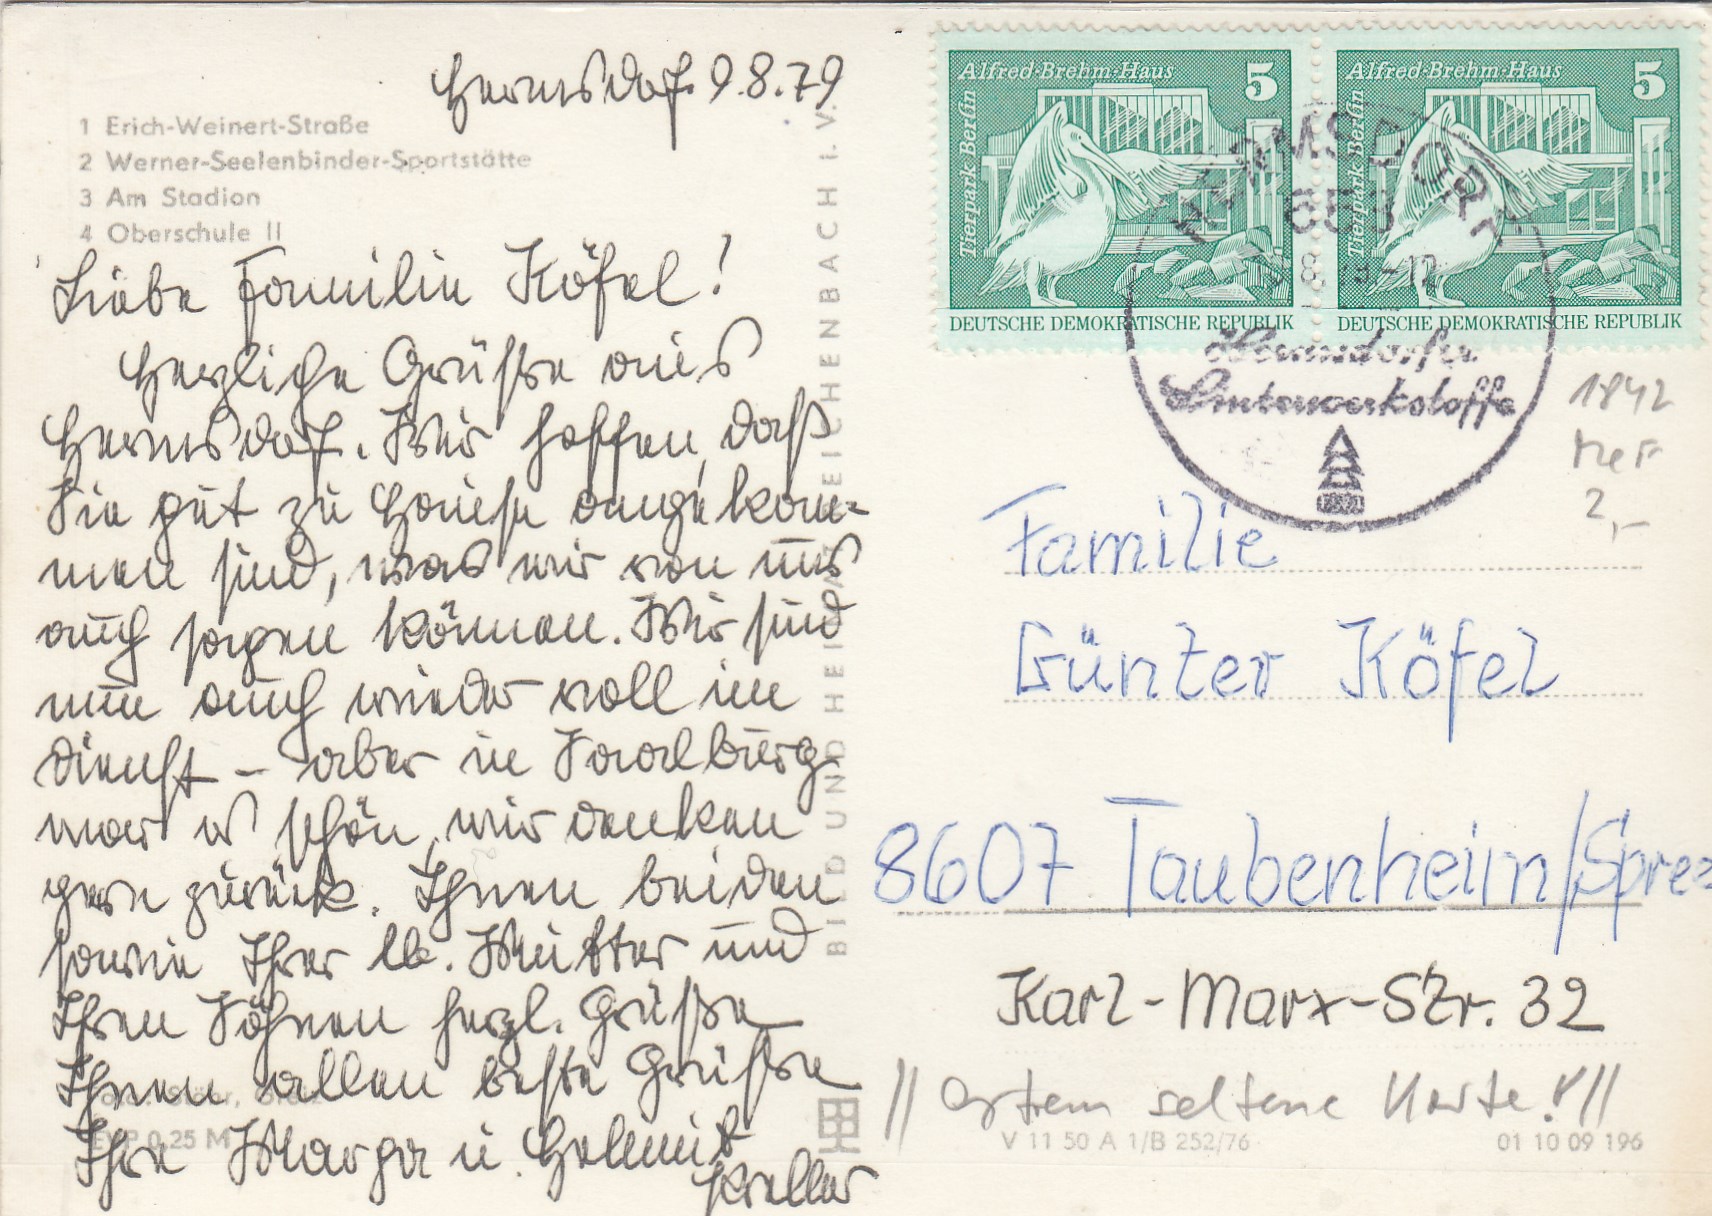 Hermsdorf. 9.8.79
1 Erich-Weinert-Straße
2 Werner-Seelenbinder-Sportstätte
3 Am Stadion
4 Oberschule II
Liebe Familie Köfel!
Herzliche Grüße aus
Hermsdorf. Wir hoffen, daß
Sie gut zu Hause angekom-
men sind, was wir von uns
auch sagen können. Wir sind
nun auch wieder voll im
Dienst - aber in Saalburg
war es schön, wir denken
gern zurück. Ihnen beiden
sowie Ihrer lb. Mutter und
Ihren Söhnen herzl. Grüße
Ihnen allen beste Grüße
Ihre Marga u. Helmut
Kreller
EVP 0,25 M
BILD UND HEIMAT REICHENBACH I. V.
Alfred-Brehm-Haus 5
Tierpark Berlin
DEUTSCHE DEMOKRATISCHE REPUBLIK
Alfred-Brehm-Haus 5
Tierpark Berlin
DEUTSCHE DEMOKRATISCHE REPUBLIK
HERMSDORF
653
Hermsdorfer
Sinterwerkstoffe
1842
MeF
2,-
Familie
Günter Köfel
8607 Taubenheim/Spree
Karl-Marx-Str. 32
// extrem seltene Karte! //
V 11 50 A 1/B 252/76 01 10 09 196